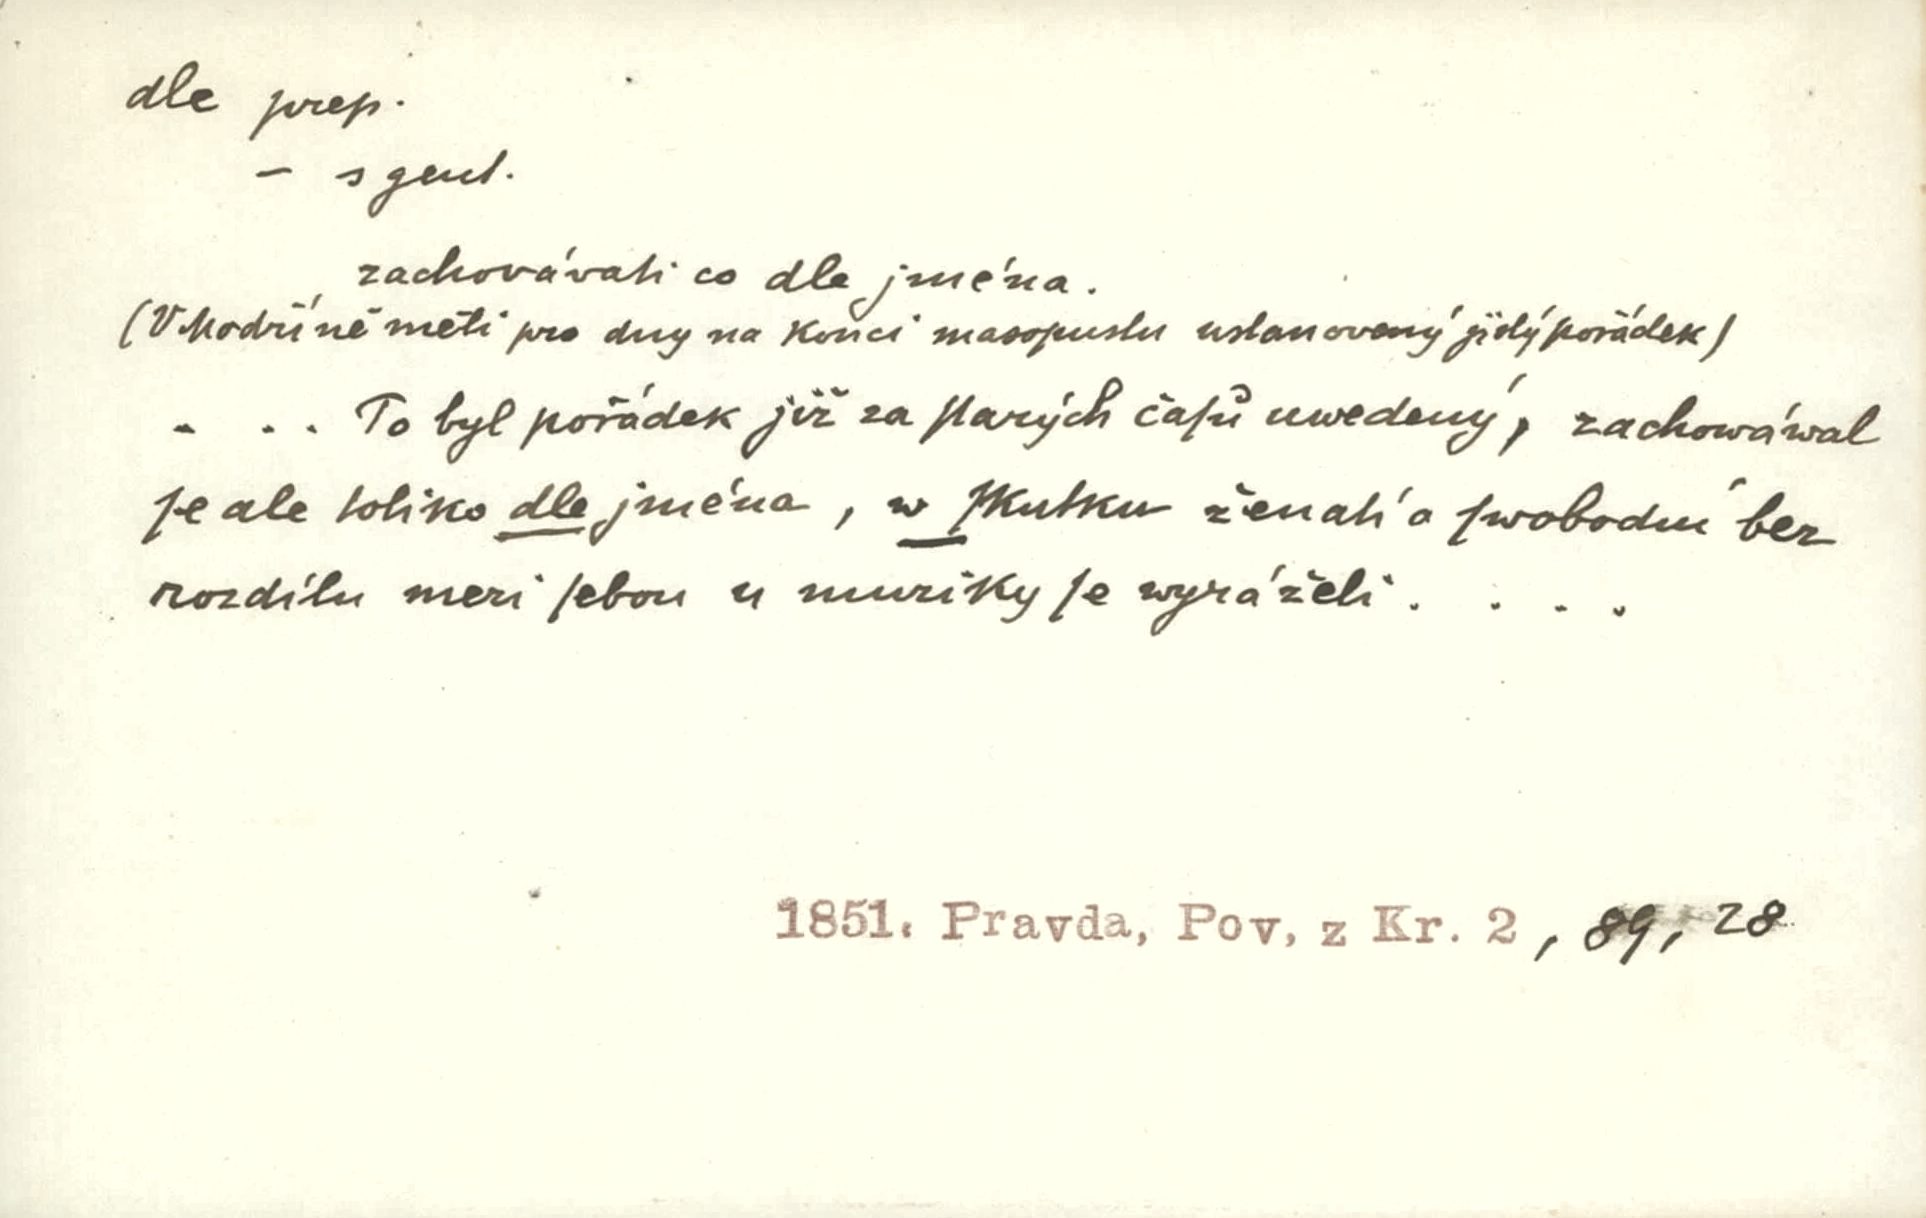 dle prep.
— s gent.
zachovávati co dle jména.
(V Modříně měli pro dny na konci masopustu ustanovený jistý pořádek)
. . . To byl pořádek již za ſtarých čaſů uwedený, zachowáwal
ſe ale toliko dle jména, w ſkutku ženatí a ſwobodní bez
rozdílu mezi ſebou u muziky ſe wyráželi. . . .
1851. Pravda, Pov. z Kr. 2, 89, 28